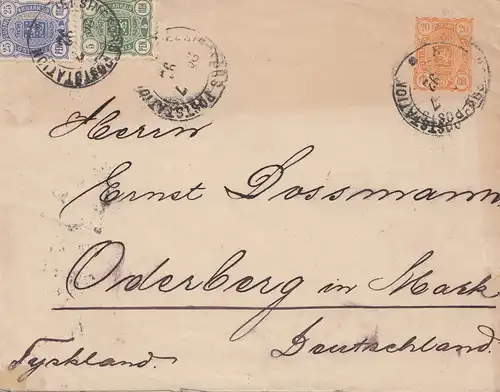 25 25
5 5
20 20
POSTSTATION
POSTSTATION
POSTSTATION
Herrn
Ernst Dossmann,
Oderberg in Mark
Tyskland. Deutschland.